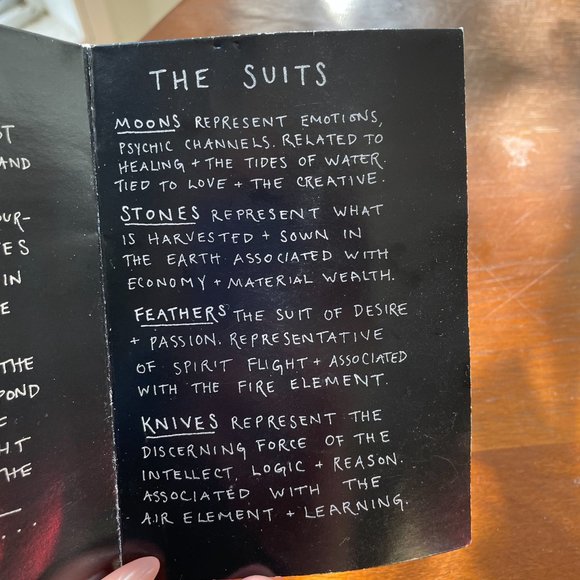 ST
AND
OUR-
ES
IN
E
THE
POND
HT
THE
...
THE SUITS
MOONS REPRESENT EMOTIONS,
PSYCHIC CHANNELS. RELATED TO
HEALING + THE TIDES OF WATER.
TIED TO LOVE + THE CREATIVE.
STONES REPRESENT WHAT
IS HARVESTED + SOWN IN
THE EARTH ASSOCIATED WITH
ECONOMY + MATERIAL WEALTH.
FEATHERS THE SUIT OF DESIRE
+ PASSION. REPRESENTATIVE
OF SPIRIT FLIGHT + ASSOCIATED
WITH THE FIRE ELEMENT.
KNIVES REPRESENT THE
DISCERNING FORCE OF THE
INTELLECT, LOGIC + REASON.
ASSOCIATED WITH THE
AIR ELEMENT + LEARNING.